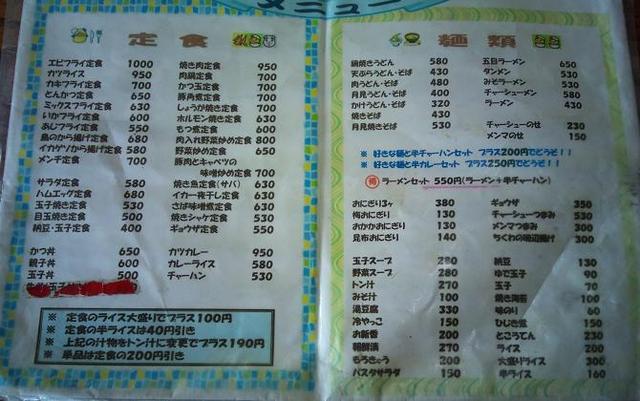 メニュー
定食
エビフライ定食 1000
カツライス 950
カキフライ定食 700
とんかつ定食 650
ミックスフライ定食 700
いかフライ定食 600
あじフライ定食 550
鳥のから揚げ定食 680
イカゲソから揚げ定食 580
メンチ定食 700
サラダ定食 580
ハムエッグ定食 680
玉子焼き定食 530
目玉焼き定食 500
納豆・玉子定食 400
かつ丼 650
親子丼 600
玉子丼 500
焼き肉定食 950
肉鍋定食 700
かつ玉定食 700
豚角煮定食 700
しょうが焼き定食 700
ホルモン焼き定食 630
もつ煮定食 600
肉入れ野菜炒め定食 800
野菜炒め定食 650
豚肉とキャベツの
味噌炒め定食 700
焼き魚定食(サバ) 630
イカ一夜干し定食 630
さば味噌煮定食 630
焼きシャケ定食 530
ギョウザ定食 550
カツカレー 950
カレーライス 580
チャーハン 530
※ 定食のライス大盛りでプラス100円
※ 定食の半ライスは40円引き
※ 上記の汁物をトン汁に変更でプラス190円
※ 単品は定食の200円引き
麺類
鍋焼きうどん 580
天ぷらうどん・そば 430
肉うどん・そば 480
月見うどん・そば 400
かけうどん・そば 320
焼きそば 430
月見焼きそば 530
五目ラーメン 650
タンメン 530
みそラーメン 530
チャーシューメン 580
ラーメン 430
チャーシューのせ 230
メンマのせ 150
※ 好きな麺と半チャーハンセット プラス200円でどうぞ!!
※ 好きな麺と半カレーセット プラス250円でどうぞ!!
ラーメンセット 550円(ラーメン+半チャーハン)
おにぎり3ヶ 380
梅おにぎり 130
おかかおにぎり 130
昆布おにぎり 140
ギョウザ 350
チャーシューつまみ 530
メンマつまみ 300
ちくわの磯辺揚げ 300
玉子スープ 280
野菜スープ 280
トン汁 270
みそ汁 100
湯豆腐 330
冷やっこ 150
お新香 200
朝鮮漬 270
もろきゅう 200
パスタサラダ 150
納豆 130
ゆで玉子 90
玉子 70
焼き海苔 100
味のり 60
ひじき煮 150
ところてん 230
ライス 200
大盛りライス 300
半ライス 160